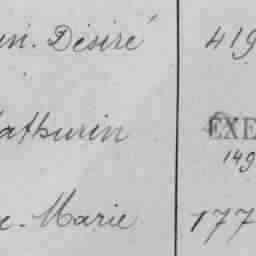 in. Désiré 419
athurin EXE
149
e. Marie 177